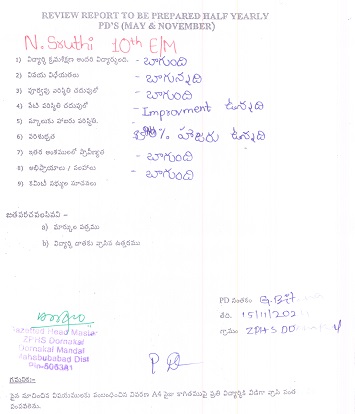 REVIEW REPORT TO BE PREPARED HALF YEARLY
PD'S (MAY & NOVEMBER)
N. Sruthi 10th E/M
1) విద్యార్థి క్రమశిక్షణ అందరి విద్యార్థులది. - బాగుంది
2) విషయ విధేయతలు - బాగున్నది
3) పూర్వపు పరిస్థితి చదువులో - బాగుంది
4) నేటి పరిస్థితి చదువులో - Improvment ఉన్నది
5) స్కూలుకు హాజరు పరిస్థితి.
6) పరిశుభ్రత % హాజరు ఉన్నది
7) ఇతర అంశములలో ప్రావీణ్యత - బాగుంది
8) అభిప్రాయాలు / సలహాలు - బాగుంది
9) కమిటీ సభ్యుల సూచనలు
జతపరచవలసినవి :-
a) మార్కుల పత్రము
b) విద్యార్థి దాతకు వ్రాసిన ఉత్తరము
PD సంతకం
తేది. 15/11/202
గ్రామం ZPHS DO
Gazetted Head Master
ZPHS Dornakal
Dornakal Mandal
Mahabubabad Dist
Pin-506381
గమనిక:-
పైన సూచించిన విషయములకు సంబంధించిన వివరణ A4 సైజు కాగితముపై ప్రతి విద్యార్థికి విడిగా వ్రాసి
పంపవలెను.